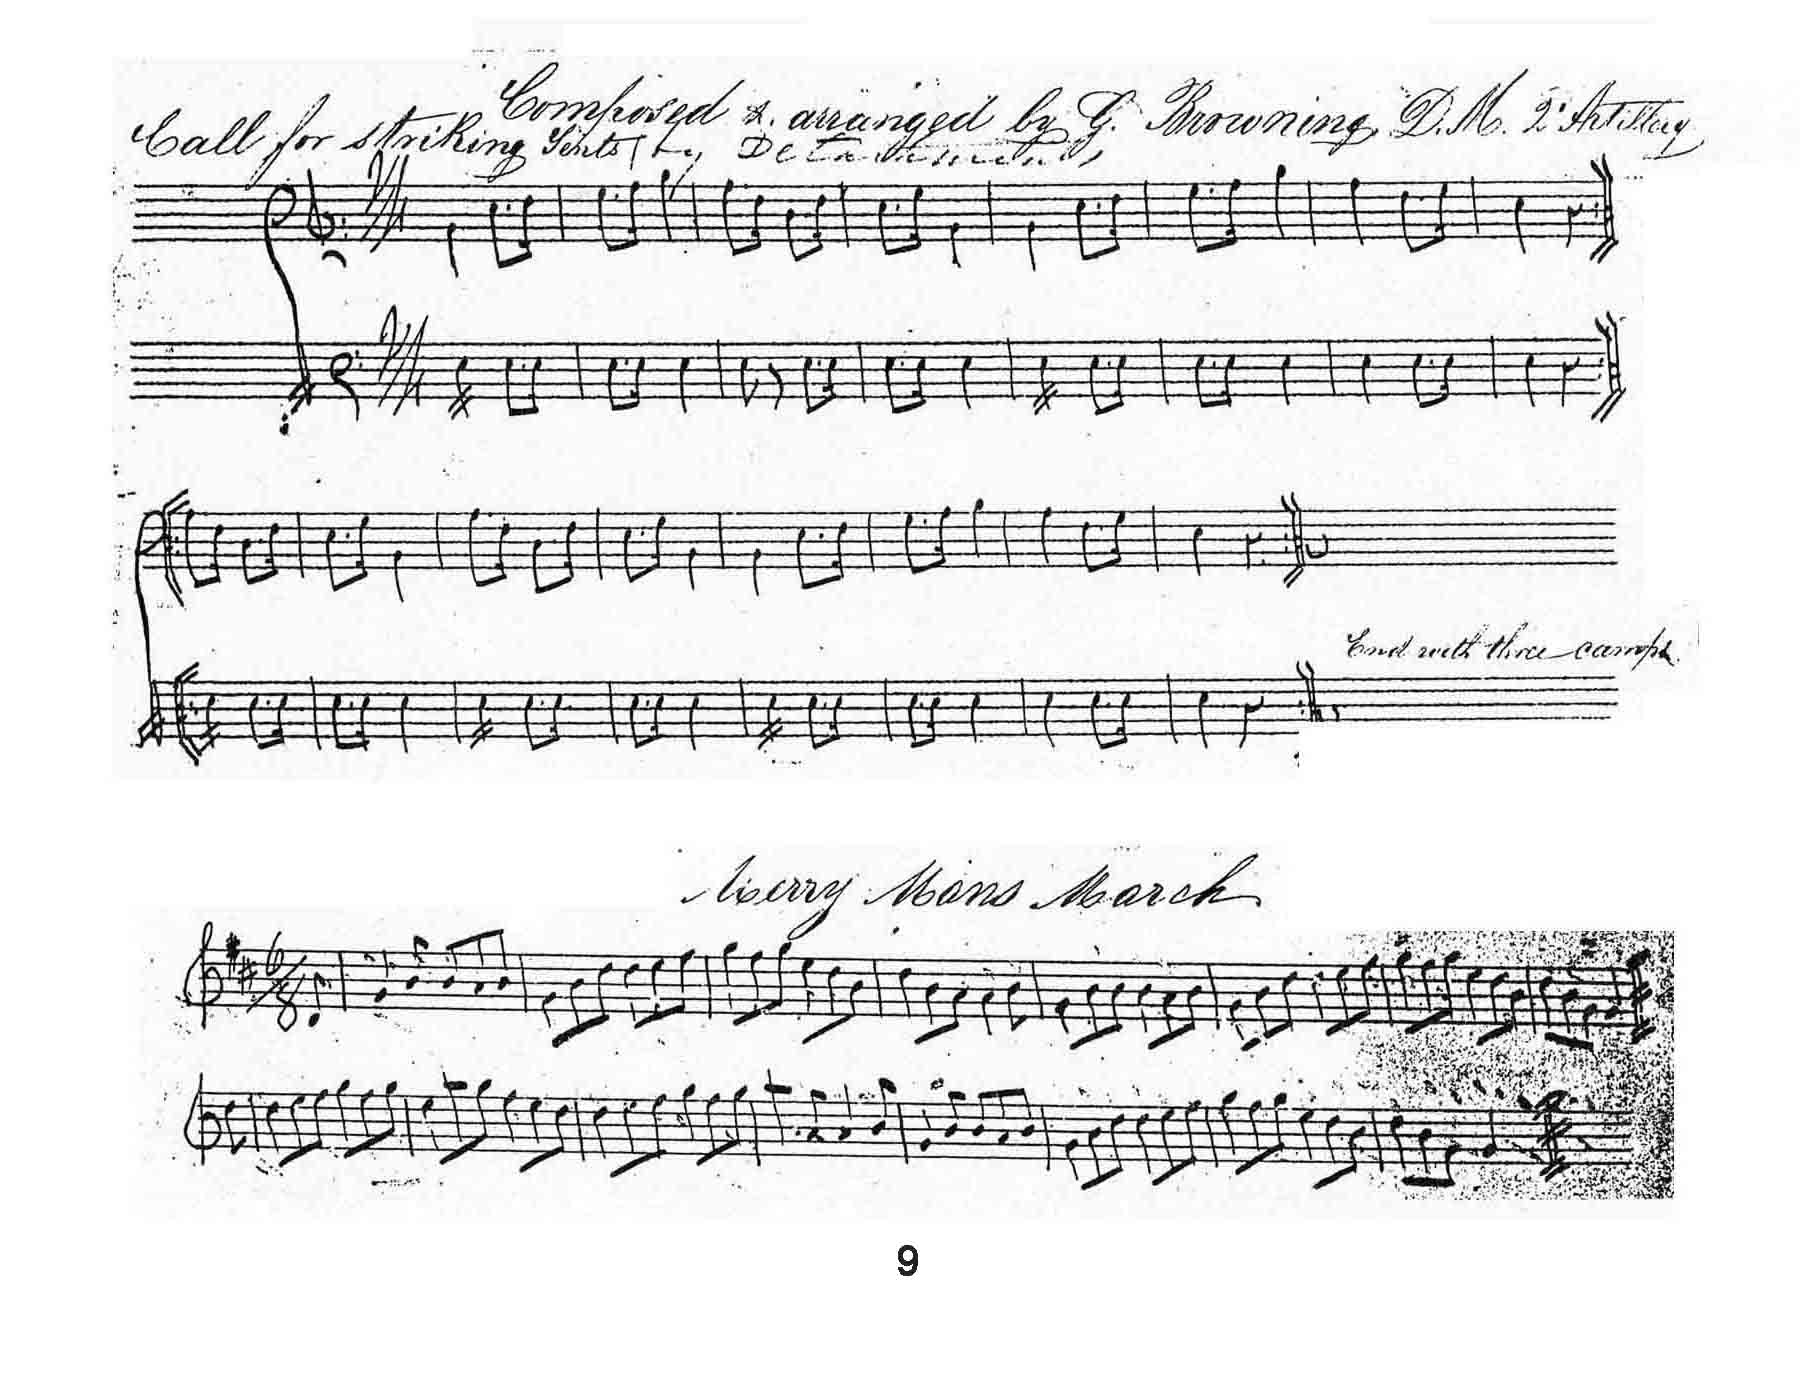 Composed &. arranged by G. Browning D.M. 2d Artillery
Call for striking Tents (by Detachments)
2/4
2/4
End with three camps.
Merry Mans March
6/8
9